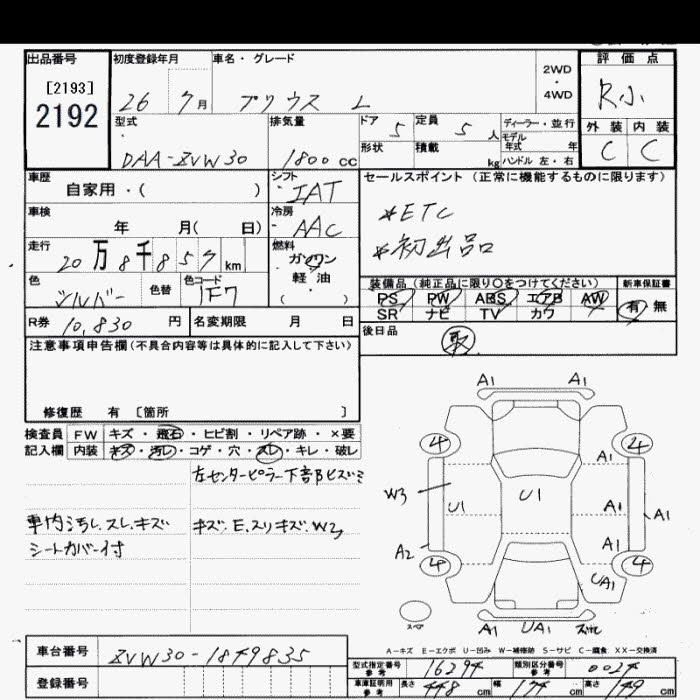 出品番号
[2193]
2192
初度登録年月
26 7月
車名・グレード
プリウス L
2WD
・
4WD
評価点
R小
外装 内装
C C
型式
DAA-ZVW30
排気量
1800cc
ドア 5
定員 5人
形状
積載 kg
ディーラー・並行
モデル年式 年
ハンドル 左・右
車歴
自家用・( )
シフト
IAT
車検
年 月( 日)
冷房
AAC
走行
20万8千857km
燃料
ガソリン
軽油
・( )
色
シルバー
色替
色コード
1F7
R券 10,830円
名変期限 月 日
セールスポイント(正常に機能するものに限ります)
*ETC
*初出品
装備品(純正品に限り〇をつけてください)
PS PW ABS エアB AW
SR ナビ TV カワ
新車保証書
有 無
後日品
取
注意事項申告欄(不具合内容等は具体的に記入して下さい)
修復歴 有 [箇所 ]
検査員 FW キズ・飛石・ヒビ割・リペア跡・×要
記入欄 内装 キズ・汚レ・コゲ・穴・スレ・キレ・破レ
左センターピラー下部ヒズミ
車内汚レ.スレ.キズ
シートカバー付
キズ.E.スリキズ.W3
A1 A1
4 4
A1
W3 U1 U1 A1 A1
A2 A1
4 4
UA1
スペア
A1 UA1
A-キズ E-エクボ U-凹み W-補修跡 S-サビ C-腐食 XX-交換済
車台番号 ZVW30-1849835
登録番号
型式指定番号 参考 16294
類別区分番号 参考 0024
車庫証明用 参考 長さ 448cm 幅 174cm 高さ 149cm